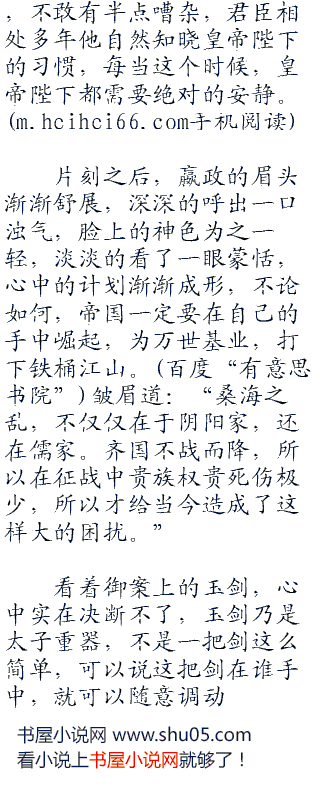 ，不敢有半点嘈杂，君臣相
处多年他自然知晓皇帝陛下
的习惯，每当这个时候，皇
帝陛下都需要绝对的安静。
(m.hcihci66.com手机阅读)
片刻之后，嬴政的眉头
渐渐舒展，深深的呼出一口
浊气，脸上的神色为之一
轻，淡淡的看了一眼蒙恬，
心中的计划渐渐成形，不论
如何，帝国一定要在自己的
手中崛起，为万世基业，打
下铁桶江山。(百度“有意思
书院”)皱眉道：“桑海之
乱，不仅仅在于阴阳家，还
在儒家。齐国不战而降，所
以在征战中贵族权贵死伤极
少，所以才给当今造成了这
样大的困扰。”
看着御案上的玉剑，心
中实在决断不了，玉剑乃是
太子重器，不是一把剑这么
简单，可以说这把剑在谁手
中，就可以随意调动
书屋小说网 www.shu05.com
看小说上书屋小说网就够了！